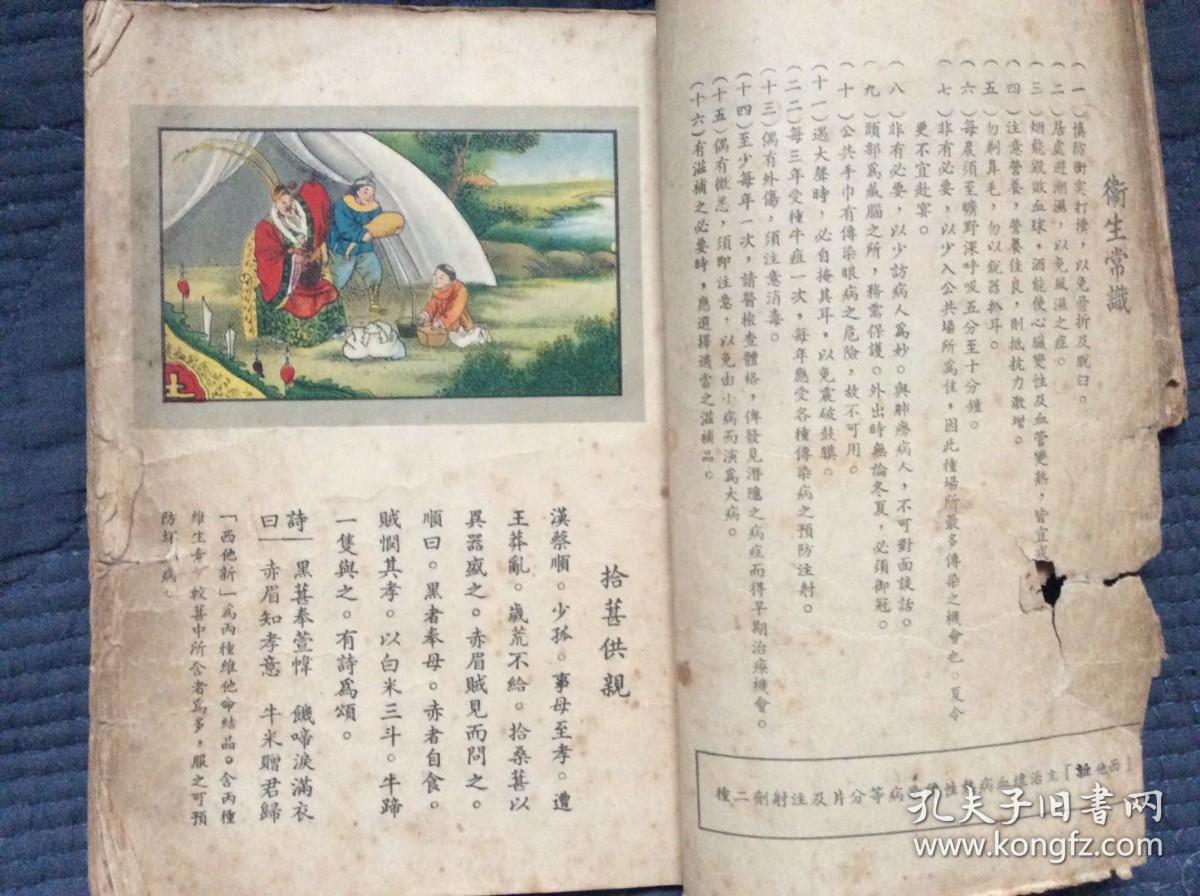 衞生常識
(一)慎防衝突打撲，以免骨折及脫臼。
(二)居處避潮濕，以免風濕之症。
(三)烟能毀敗血球，酒能使心臟變性及血管變熱，皆宜戒
(四)注意營養，營養佳良，則抵抗力激增。
(五)勿剃鼻毛，勿以銳器抓耳。
(六)每晨須至曠野深呼吸五分至十分鐘。
(七)非有必要，以少入公共場所爲佳，因此種場所最多傳染之機會也。夏令
更不宜赴宴。
(八)非有必要，以少訪病人爲妙。與肺癆病人，不可對面談話。
(九)頭部爲藏腦之所，務需保護。外出時無論冬夏，必須御冠。
(十)公共手巾有傳染眼病之危險，故不可用。
(十一)遇大聲時，必自掩其耳，以免震破鼓膜。
(二二)每三年受種牛痘一次，每年應受各種傳染病之預防注射。
(十三)偶有外傷，須注意消毒。
(十四)至少每年一次，請醫檢查體格，俾發見潛隱之病症而得早期治療機會。
(十五)偶有微恙，須即注意，以免由小病而演爲大病。
(十六)有滋補之必要時，應選擇適當之滋補品。
「西他
主治壞血病
病等分片及注射劑二種
拾葚供親
漢蔡順。少孤。事母至孝。遭
王莽亂。歲荒不給。拾桑葚以
異器盛之。赤眉賊見而問之。
順曰。黑者奉母。赤者自食。
賊憫其孝。以白米三斗。牛蹄
一隻與之。有詩爲頌。
詩｜黑葚奉萱幃　饑啼淚滿衣
曰｜赤眉知孝意　牛米贈君歸
「西他新」爲丙種維他命結品。含丙種
維生素　較葚中所含者爲多，服之可預
防壞　病。
孔夫子旧书网
www.kongfz.com